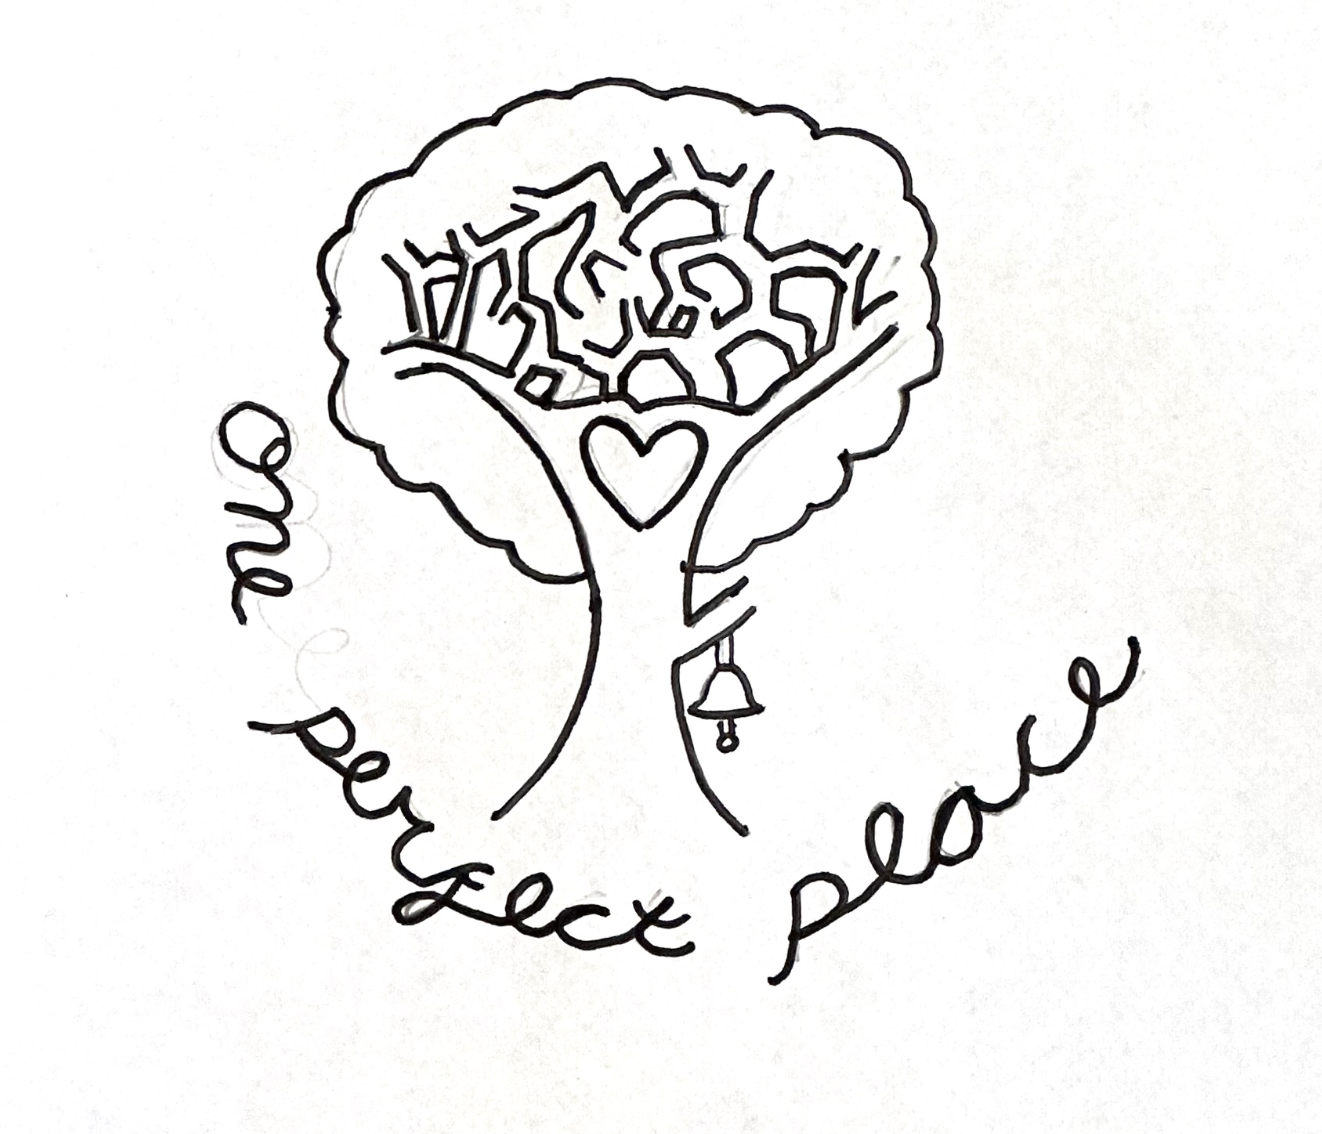 one perfect place